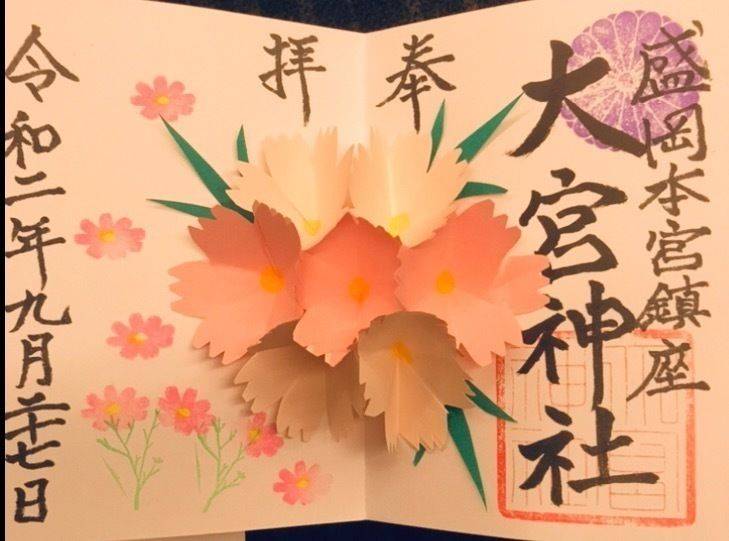 盛岡本宮鎮座
大宮神社
奉
拝
令和二年九月二十七日